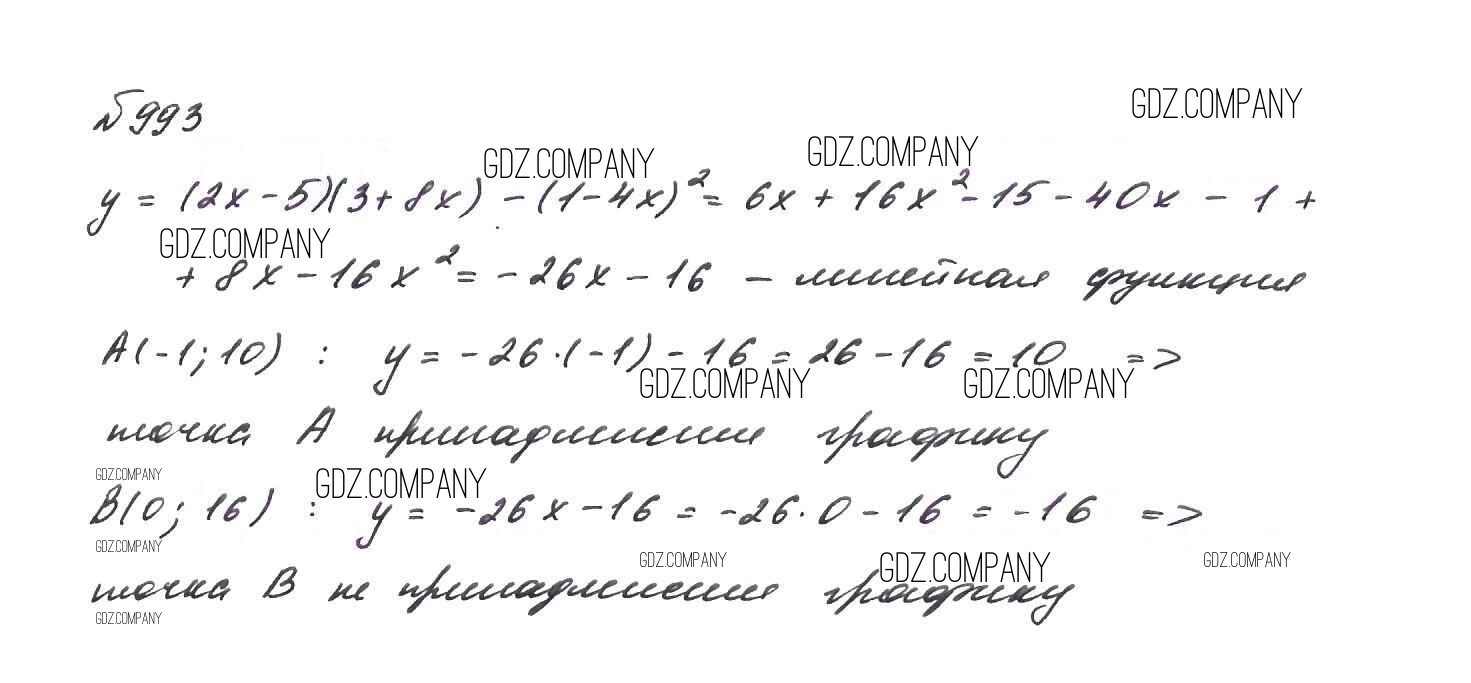 №993
GDZ.COMPANY
GDZ.COMPANY GDZ.COMPANY
y = (2x - 5)(3 + 8x) - (1 - 4x)² = 6x + 16x² - 15 - 40x - 1 +
GDZ.COMPANY
+ 8x - 16x² = - 26x - 16 – линейная функция
A(-1; 10) : y = -26·(-1) - 16 = 26 - 16 = 10 =>
GDZ.COMPANY GDZ.COMPANY
точка A принадлежит графику
GDZ.COMPANY GDZ.COMPANY
B(0; 16) : y = -26x - 16 = -26·0 - 16 = -16 =>
GDZ.COMPANY GDZ.COMPANY GDZ.COMPANY GDZ.COMPANY
точка B не принадлежит графику
GDZ.COMPANY